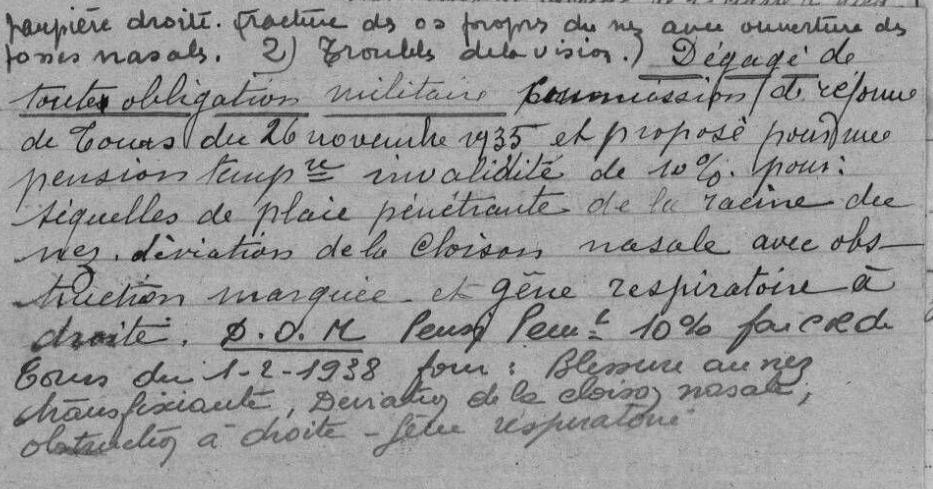 paupière droite. fracture des os propres du nez avec ouverture des
fosses nasales. 2) Troubles de la vision.) Dégagé de
toutes obligation militaire Commission de réforme
de Tours du 26 novembre 1935 et proposé pour une
pension temp re invalidité de 10%. pour:
séquelles de plaie pénétrante de la racine du
nez. déviation de la cloison nasale avec obs-
truction marquée - et gêne respiratoire à
droite. D.O.M Pens. Perm. t 10% par CR de
Tours du 1-2-1938 pour: Blessure au nez
transfixiante, Déviation de la cloison nasale,
obstruction à droite - Gêne respiratoire